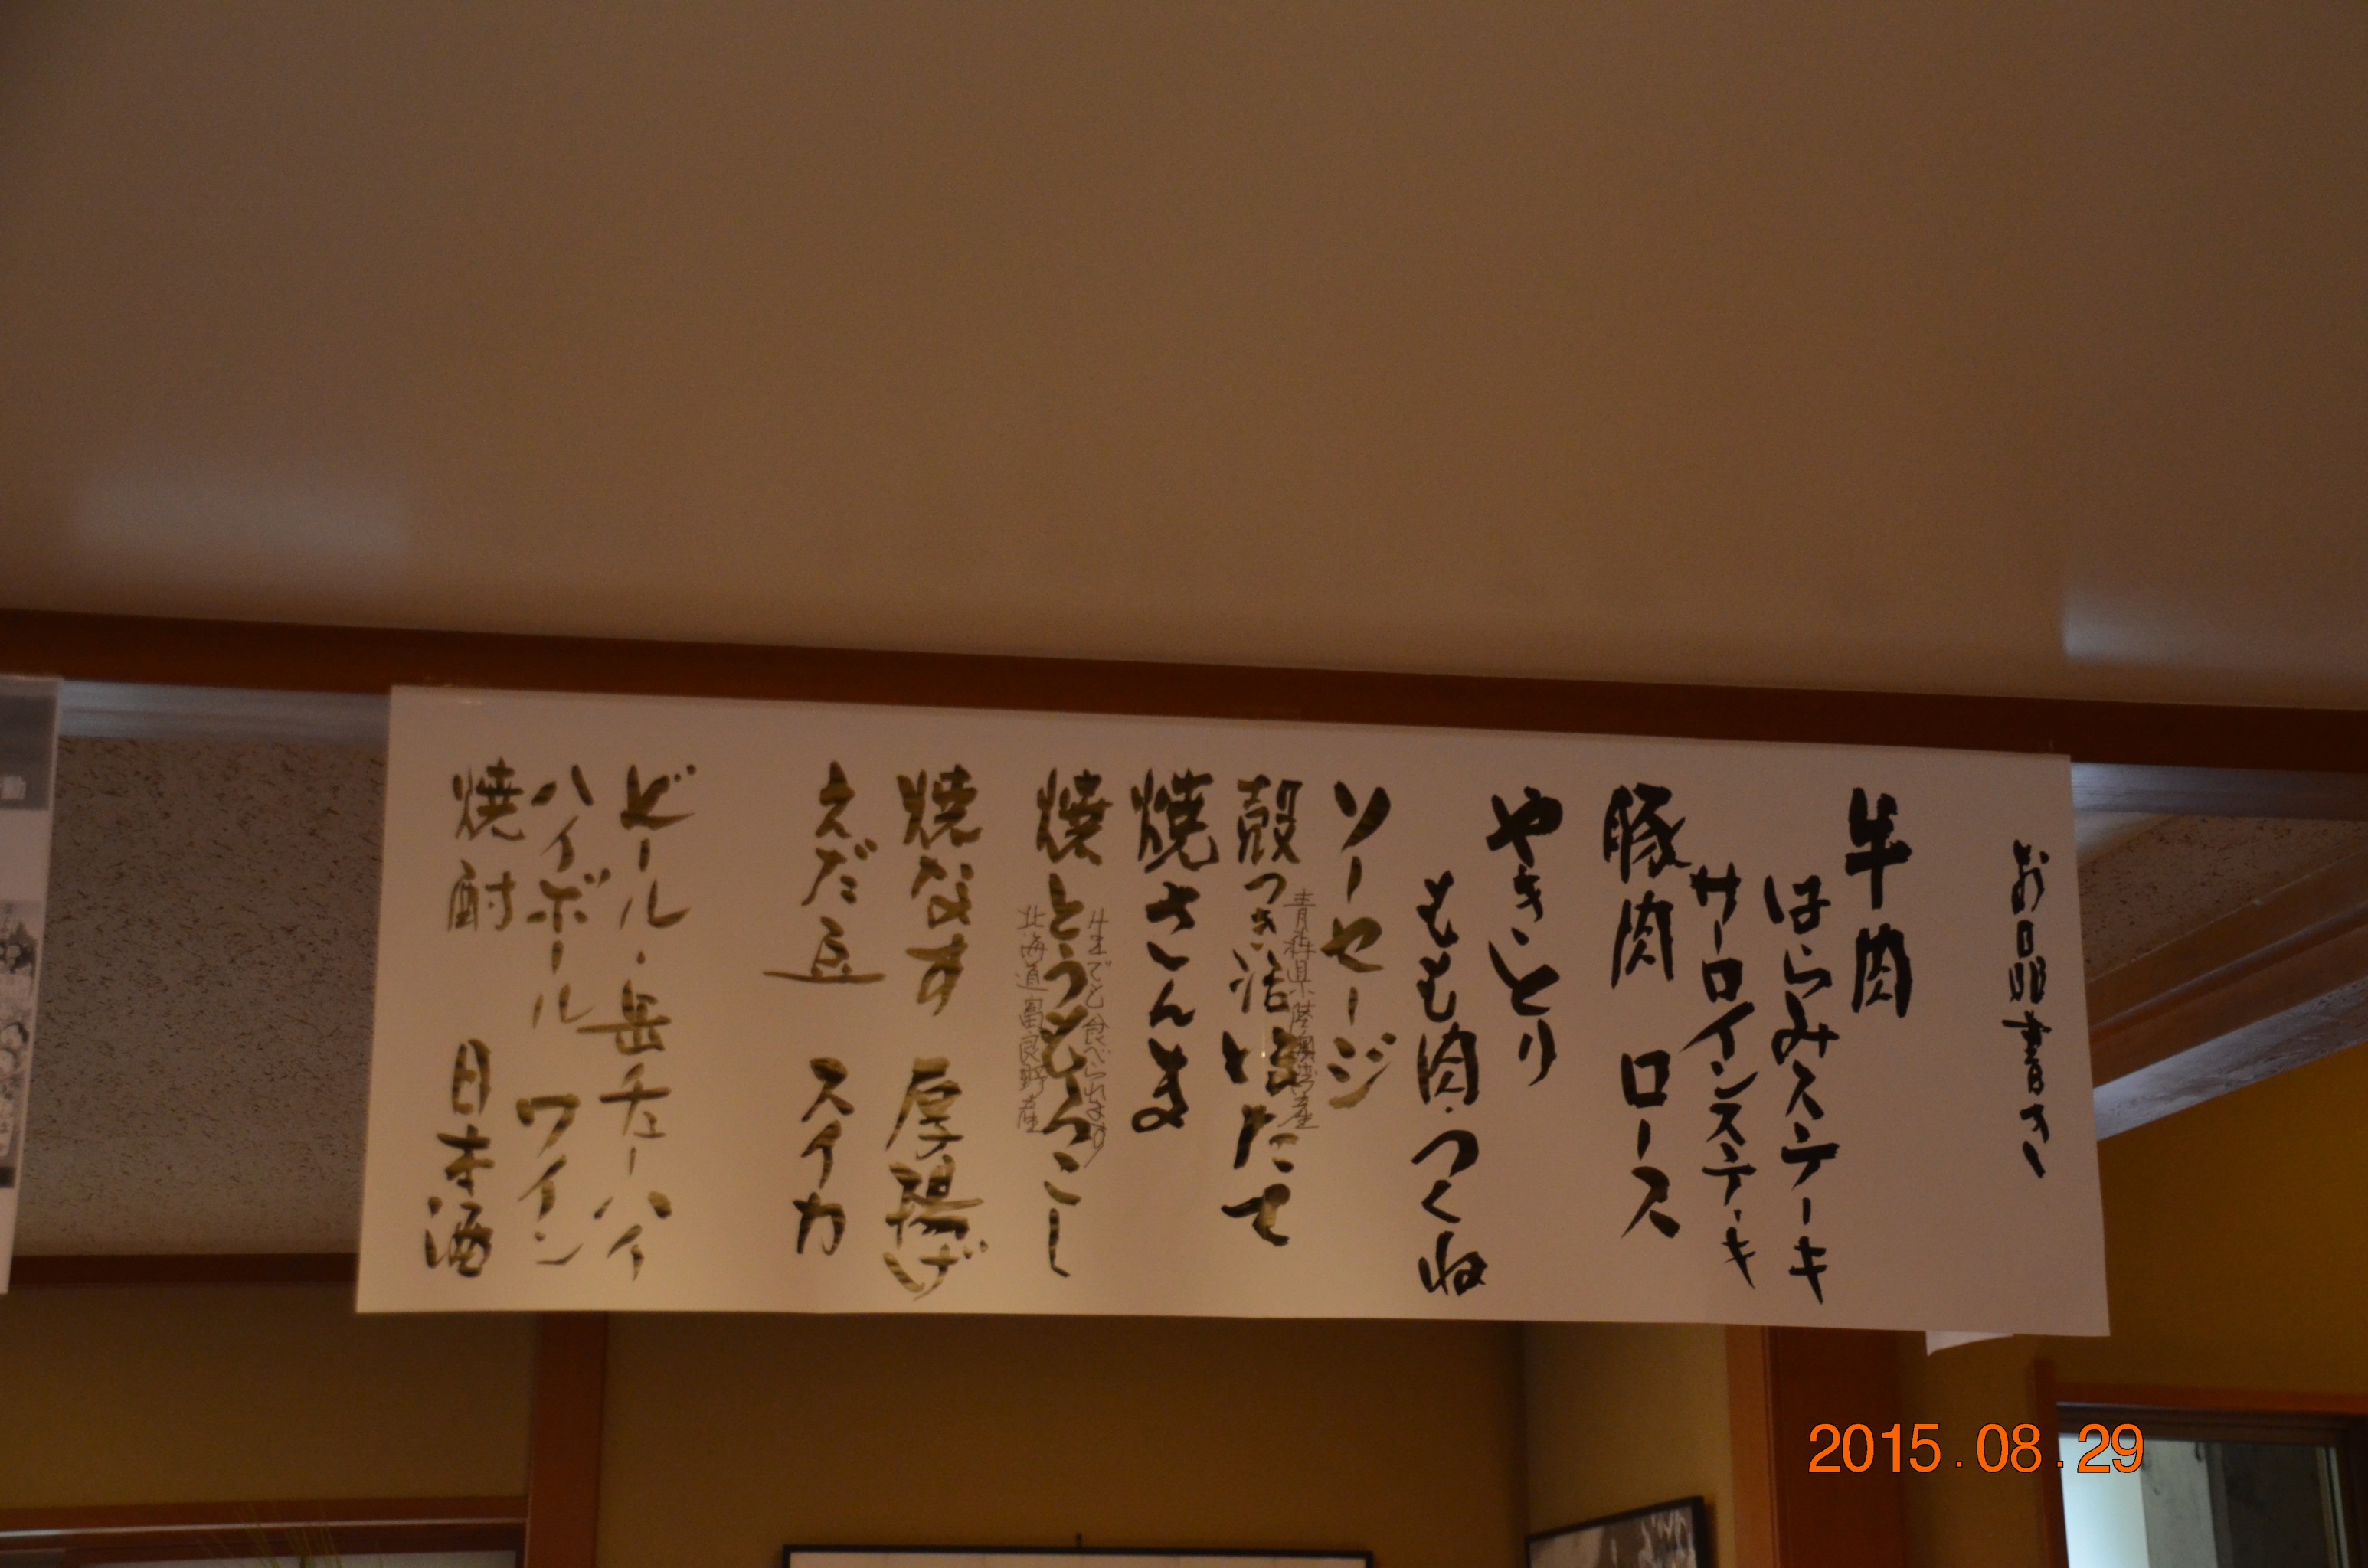 お品書き
牛肉
はらみステーキ
サーロインステーキ
豚肉 ロース
やきとり
もも肉・つくね
ソーセージ
青森県陸奥湾産
殻つき活ほたて
焼さんま
生でも食べられます
焼とうもろこし
北海道富良野産
焼なす 厚揚げ
えだ豆 スイカ
ビール・缶チューハイ
ハイボール ワイン
焼酎 日本酒
2015.08.29